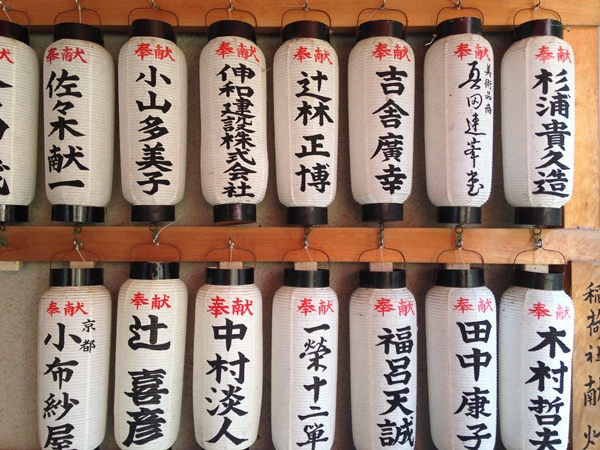 奉献
佐々木献一
奉献
小山多美子
奉献
伸和建設株式会社
奉献
辻林正博
奉献
吉舎廣幸
奉献
美術品商
奉献
杉浦貴久造
奉献
京都
小布紗屋
奉献
辻喜彦
奉献
中村淡人
奉献
一榮十二単
奉献
福呂天誠
奉献
田中康子
奉献
木村哲夫
稲荷社献灯